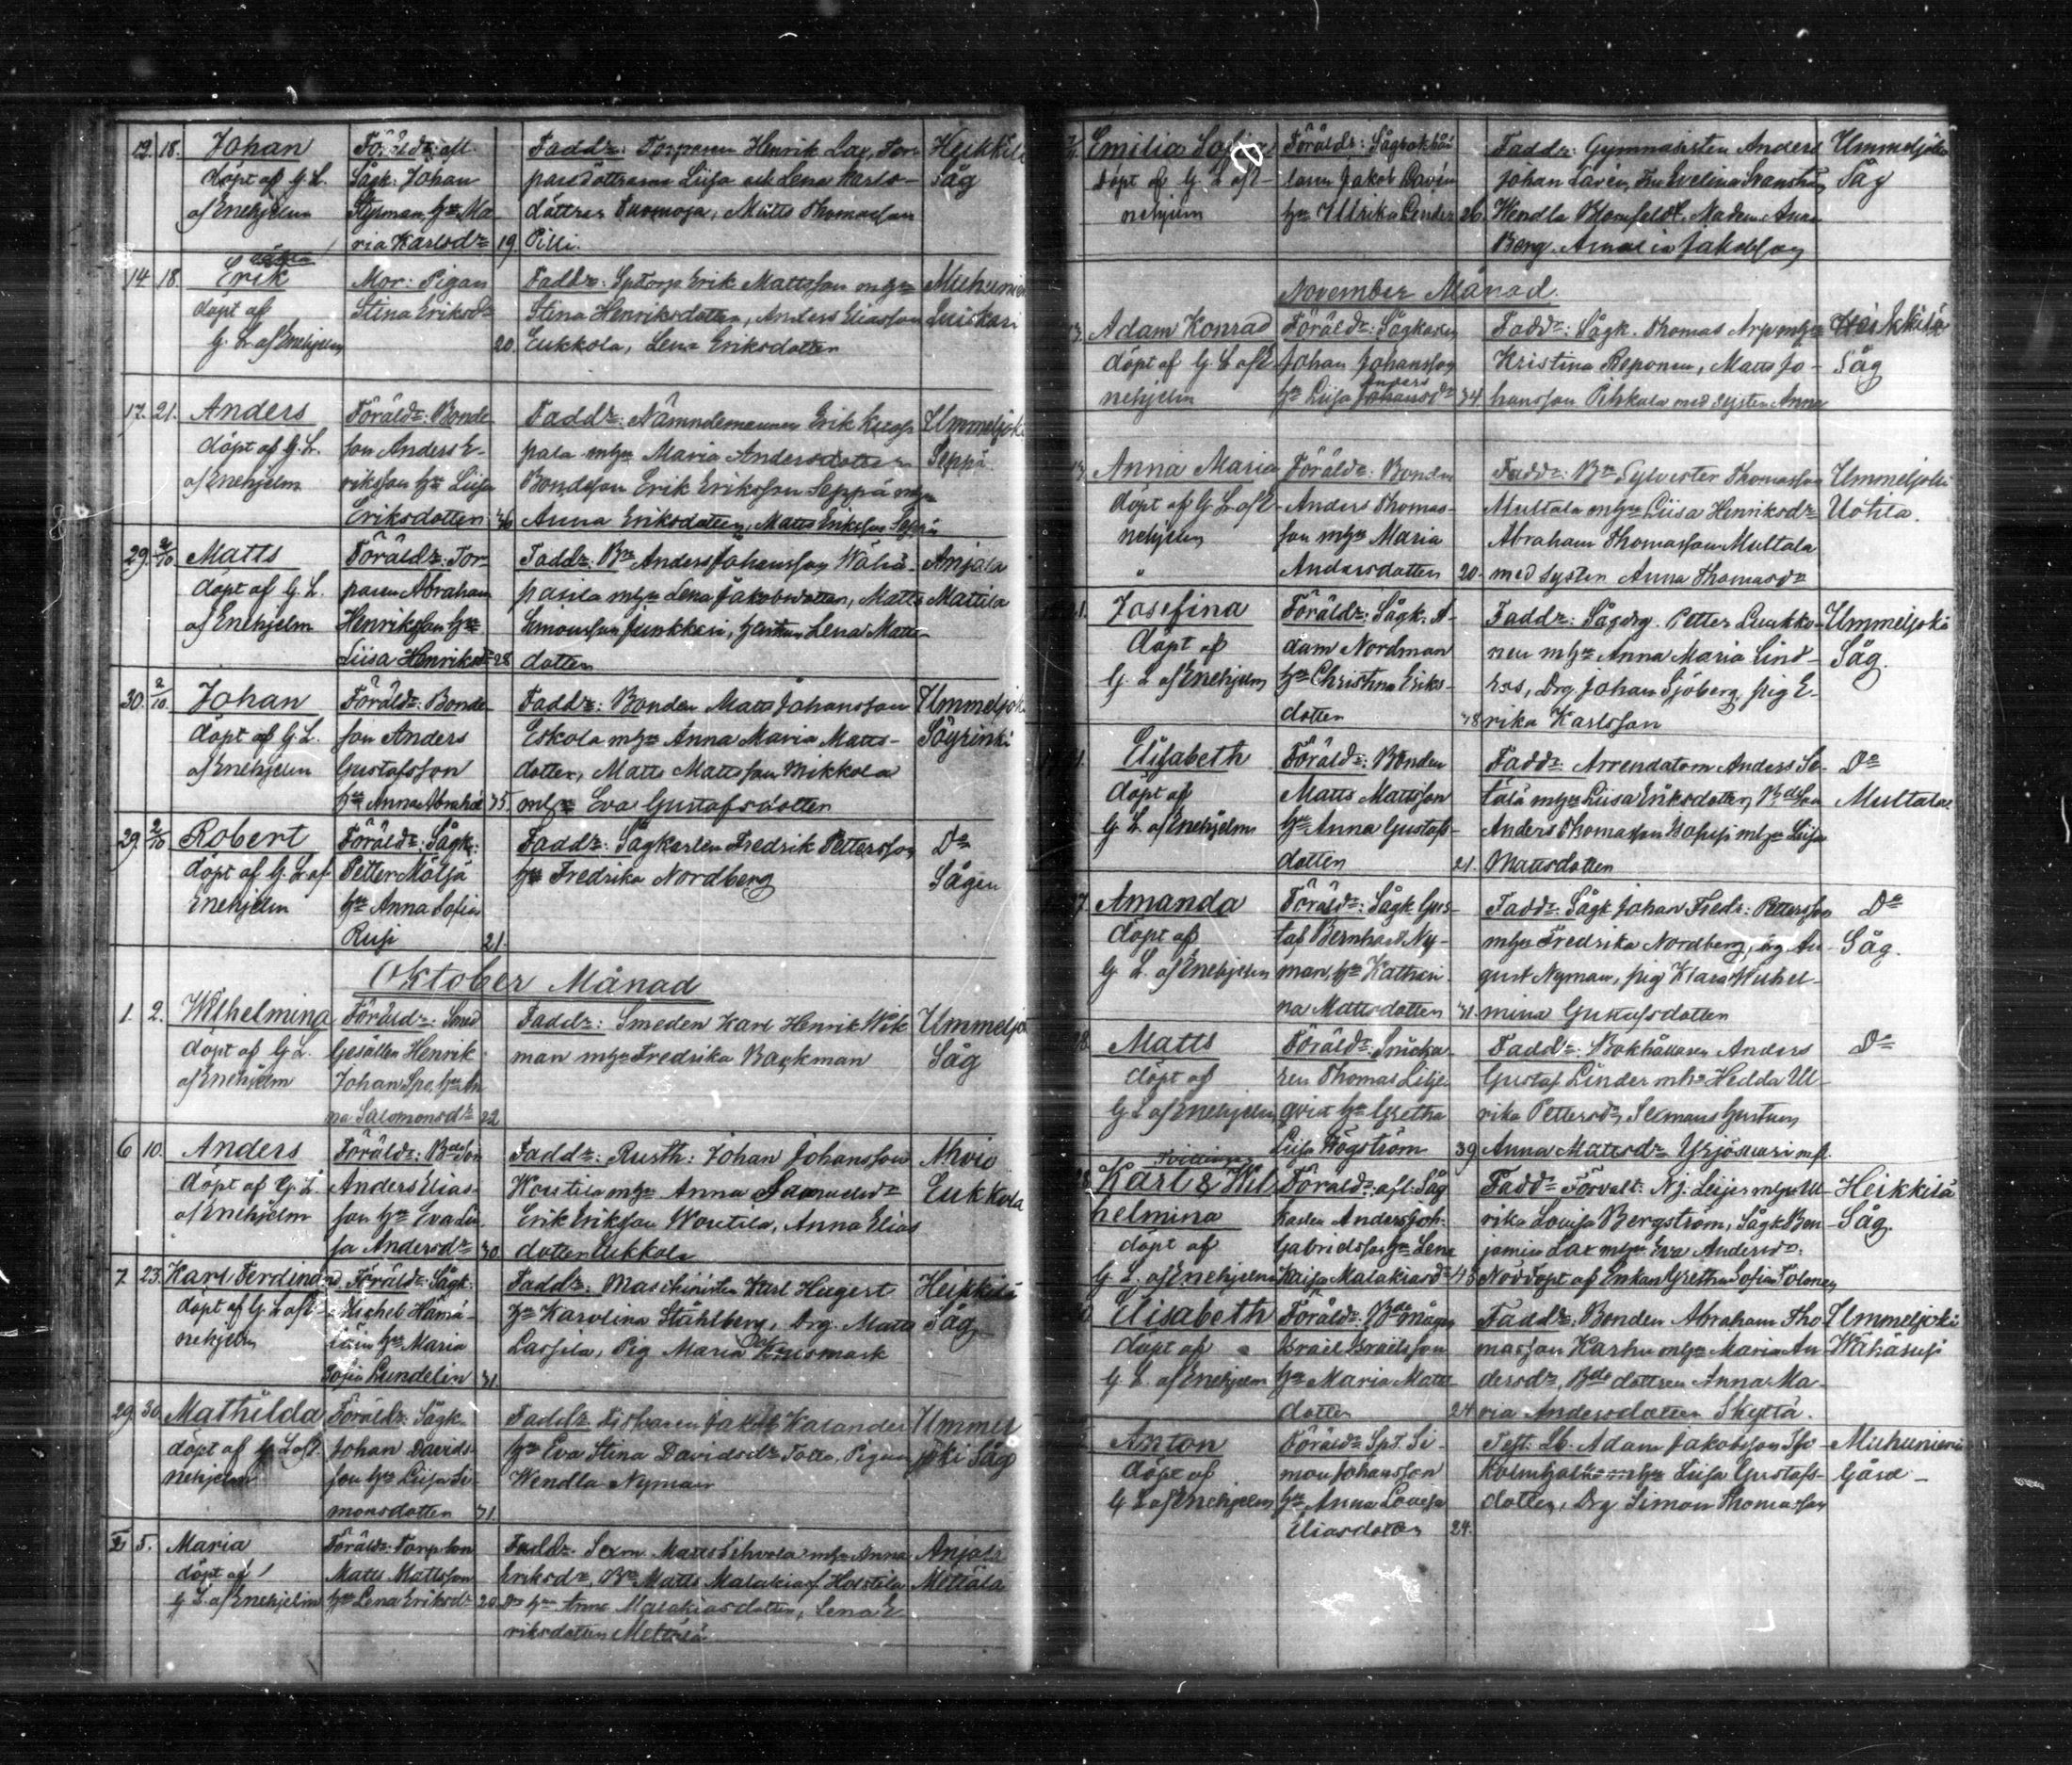 19. 18. Johan
döpt af G. L.
af Enehjelm
Föräldr: afl.
Sågk: Johan
Styrman, hu Ma-
ria Karlsdr 19.
Faddr: Torparen Henrik Lax, Tor-
paredöttrarna Liisa och Lena Karls-
döttrar Suomoja, Matts Thomasson
Pilli.
Heikkilä
Såg
14 18. Erik
döpt af
G. L. af Enehjelm
Mor: Pigan
Stina Eriksdr
20.
Faddr: Sptorp Erik Mattsson mhu
Stina Henriksdotter, Anders Eliasson
Eukkola, Lena Eriksdotter
17. 21. Anders
döpt af G. L.
af Enehjelm
Föräldr: Bonde
son Anders E-
riksson hu Liisa
Eriksdotter 36
Faddr: Nämndemannen Erik
pala mhu Maria Andersdotter
Bondeson Erik Eriksson Seppä mhu
Anna Eriksdotter, Matts Eriksson Seppä
Ummeljoki
Seppä
29. 2/10 Matts
döpt af G. L.
af Enehjelm
Föräldr: Tor-
paren Abraham
Henriksson hu
Liisa Henriksdr 28
Faddr: Bn Anders Johansson Wähä-
pasila mhu Lena Jakobsdotter, Matts
Simonsson Junkkari, Lena Matts-
dotter
Anjala
Mattila
30. 2/10 Johan
döpt af G. L.
af Enehjelm
Föräldr: Bonde
son Anders
Gustafsson
hu Anna Abrahd 35.
Faddr: Bonden Matts Johansson
Eskola mhu Anna Maria Matts-
dotter, Matts Mattsson Mikkola
mhu Eva Gustafsdotter
Ummeljoki
Söyrinki
29. 2/10 Robert
döpt af G. L. af
Enehjelm
Föräldr: Sågk:
Petter Mölsä
hu Anna Sofia
Rusi 21.
Faddr: Sågkarlen Fredrik Pettersson
hu Fredrika Nordberg
Do
Sågen
Oktober Månad
1. 2. Wilhelmina
döpt af G. L.
af Enehjelm
Föräldr: Smed
Gesällen Henrik
Johan hu An-
na Salomonsdr 22
Faddr: Smeden Karl Henrik Wik
man mhu Fredrika Backman
Ummeljo
Såg
6 10. Anders
döpt af G. L.
af Enehjelm
Föräldr: Bdeson
Anders Elias-
son hu Eva Lii-
sa Andersdr 30.
Faddr: Rusth: Johan Johansson
Woutila mhu Anna
Erik Eriksson Woutila, Anna Elias
dotter Eukkola
Ahvio
Eukkola
7 23. Karl Ferdinand
döpt af G. L. af E-
nehjelm
Föräldr: Sågk.
Michel Hämä-
läin hu Maria
Sofia Lundelin 31.
Faddr: Maschinisten Karl Hugert
hu Karolina Ståhlberg, Drg. Matts
Lassila, Pig Maria
Heikkilä
Såg
29. 30. Mathilda
döpt af G L af E-
nehjelm
Föräldr: Sågk.
Johan Davids-
son hu Liisa Si-
monsdotter 31
Faddr: Fiskaren Jakob Kalander
hu Eva Stina Davidsdr Pigan
Wendla Nyman
Ummel
joki Såg
5. Maria
döpt af
G. L. af Enehjelm
Föräldr: Torp son
Matts Mattsson
hu Lena Eriksdr 20.
Faddr. Sexm Matts Sihvola mhu Anna
Eriksdr, Bn Matts Malakias Hostila
Do hu Anna Malakiasdotter, Lena E-
riksdotter Mettälä
Anjala
Mettälä
Emilia Sofia
döpt af G. L. af E-
nehjelm
Föräldr: Sågbokhål
laren Jakob Lavén
hu Ullrika Linder 26.
Faddr: Gymnasisten Anders
Johan Lavén, Fru Evelina Svanström,
Wendla Blomfeldt, Madem Anna
Berg. Amalia Jakobsson
Ummeljoki
Såg
November Månad.
Adam Konrad
döpt af G. L. af E-
nehjelm
Föräldr: Sågkarlen
Johan Johansson
Anders
hu Liisa Johansdr 34.
Faddr: Sågk. Thomas Arp mhu
Kristina Reponen, Matts Jo-
hansson Pihkala med syster Anna
Heikkilä
Såg
Anna Maria
döpt af G L af E-
nehjelm
Föräldr: Bonden
Anders Thomas-
son mhu Maria
Andersdotter 20.
Faddr: Bn Sylvester Thomasson
Multala mhu Liisa Henriksdr
Abraham Thomasson Multala
med syster Anna Thomasdr
Ummeljoki
Uotila.
Josefina
döpt af
G. L. af Enehjelm
Föräldr: Sågk. A-
dam Nordman
hu Christina Eriks-
dotter 38
Faddr: Sågdrg. Petter Luukko-
nen mhu Anna Maria Lind-
ros, Drg. Johan Sjöberg, pig E-
rika Karlsson
Ummeljoki
Såg.
Elisabeth
döpt af
G. L. af Enehjelm
Föräldr: Bonden
Matts Mattsson
hu Anna Gustafs-
dotter 21.
Faddr: Arrendatorn Anders
mhu Liisa Eriksdotter, Bdeson
Anders Thomasson mhu Liisa
Mattsdotter
Do
Multala
Amanda
döpt af
G. L. af Enehjelm
Föräldr: Sågk Gus-
taf Bernhard Ny-
man, hu Kathari-
na Mattsdotter 31.
Faddr: Sågk Johan Fredr: Pettersson
mhu Fredrika Nordberg, Au-
gust Nyman, pig Klara Wilhel-
mina Gustafsdotter
Do
Såg.
28. Matts
döpt af
G L af Enehjelm
Föräldr: Snicka-
ren Thomas Lilje
qvist hu Gretha
Liisa Högström 39.
Faddr: Bokhållaren Anders
Gustaf Linder mhu Hedda Ul-
rika Pettersdr, Sexmans hustrun
Anna Mattsdr Yrjösuuri m.fl.
Do
Tvillingar
Karl & Wil-
helmina
döpt af
G. L. af Enehjelm
Föräldr: afl. Såg
karlen Anders Joh.
Gabrielsson hu Lena
Kaisa Malakiasdr 43
Faddr Förvalt. Nj. Leijer mhu Ul-
rika Lovisa Bergström, Sågk Ben-
jamin Lax mhu Eva Andersdr.
Nöddöpt af Enkan Gretha Sofia Solonen
Heikkilä
Såg.
Elisabeth
döpt af
G. L. af Enehjelm
Föräldr: Bdemågen
Israel Israelsson
hu Maria Matts
dotter 24.
Faddr: Bonden Abraham Tho-
masson Karhu mhu Maria An-
dersdr, Bde dottren Anna Ma-
ria Andersdotter Skyttä.
Ummeljoki
Wähäsusi
Anton
döpt af
G L af Enehjelm
Föräldr: SpT. Si-
mon Johansson
hu Anna Lovisa
Eliasdotter 24.
Test. Lb. Adam Jakobsson
mhu Liisa Gustafs-
dotter, Drg Simon Thomasson
Muhuniemi
Gård